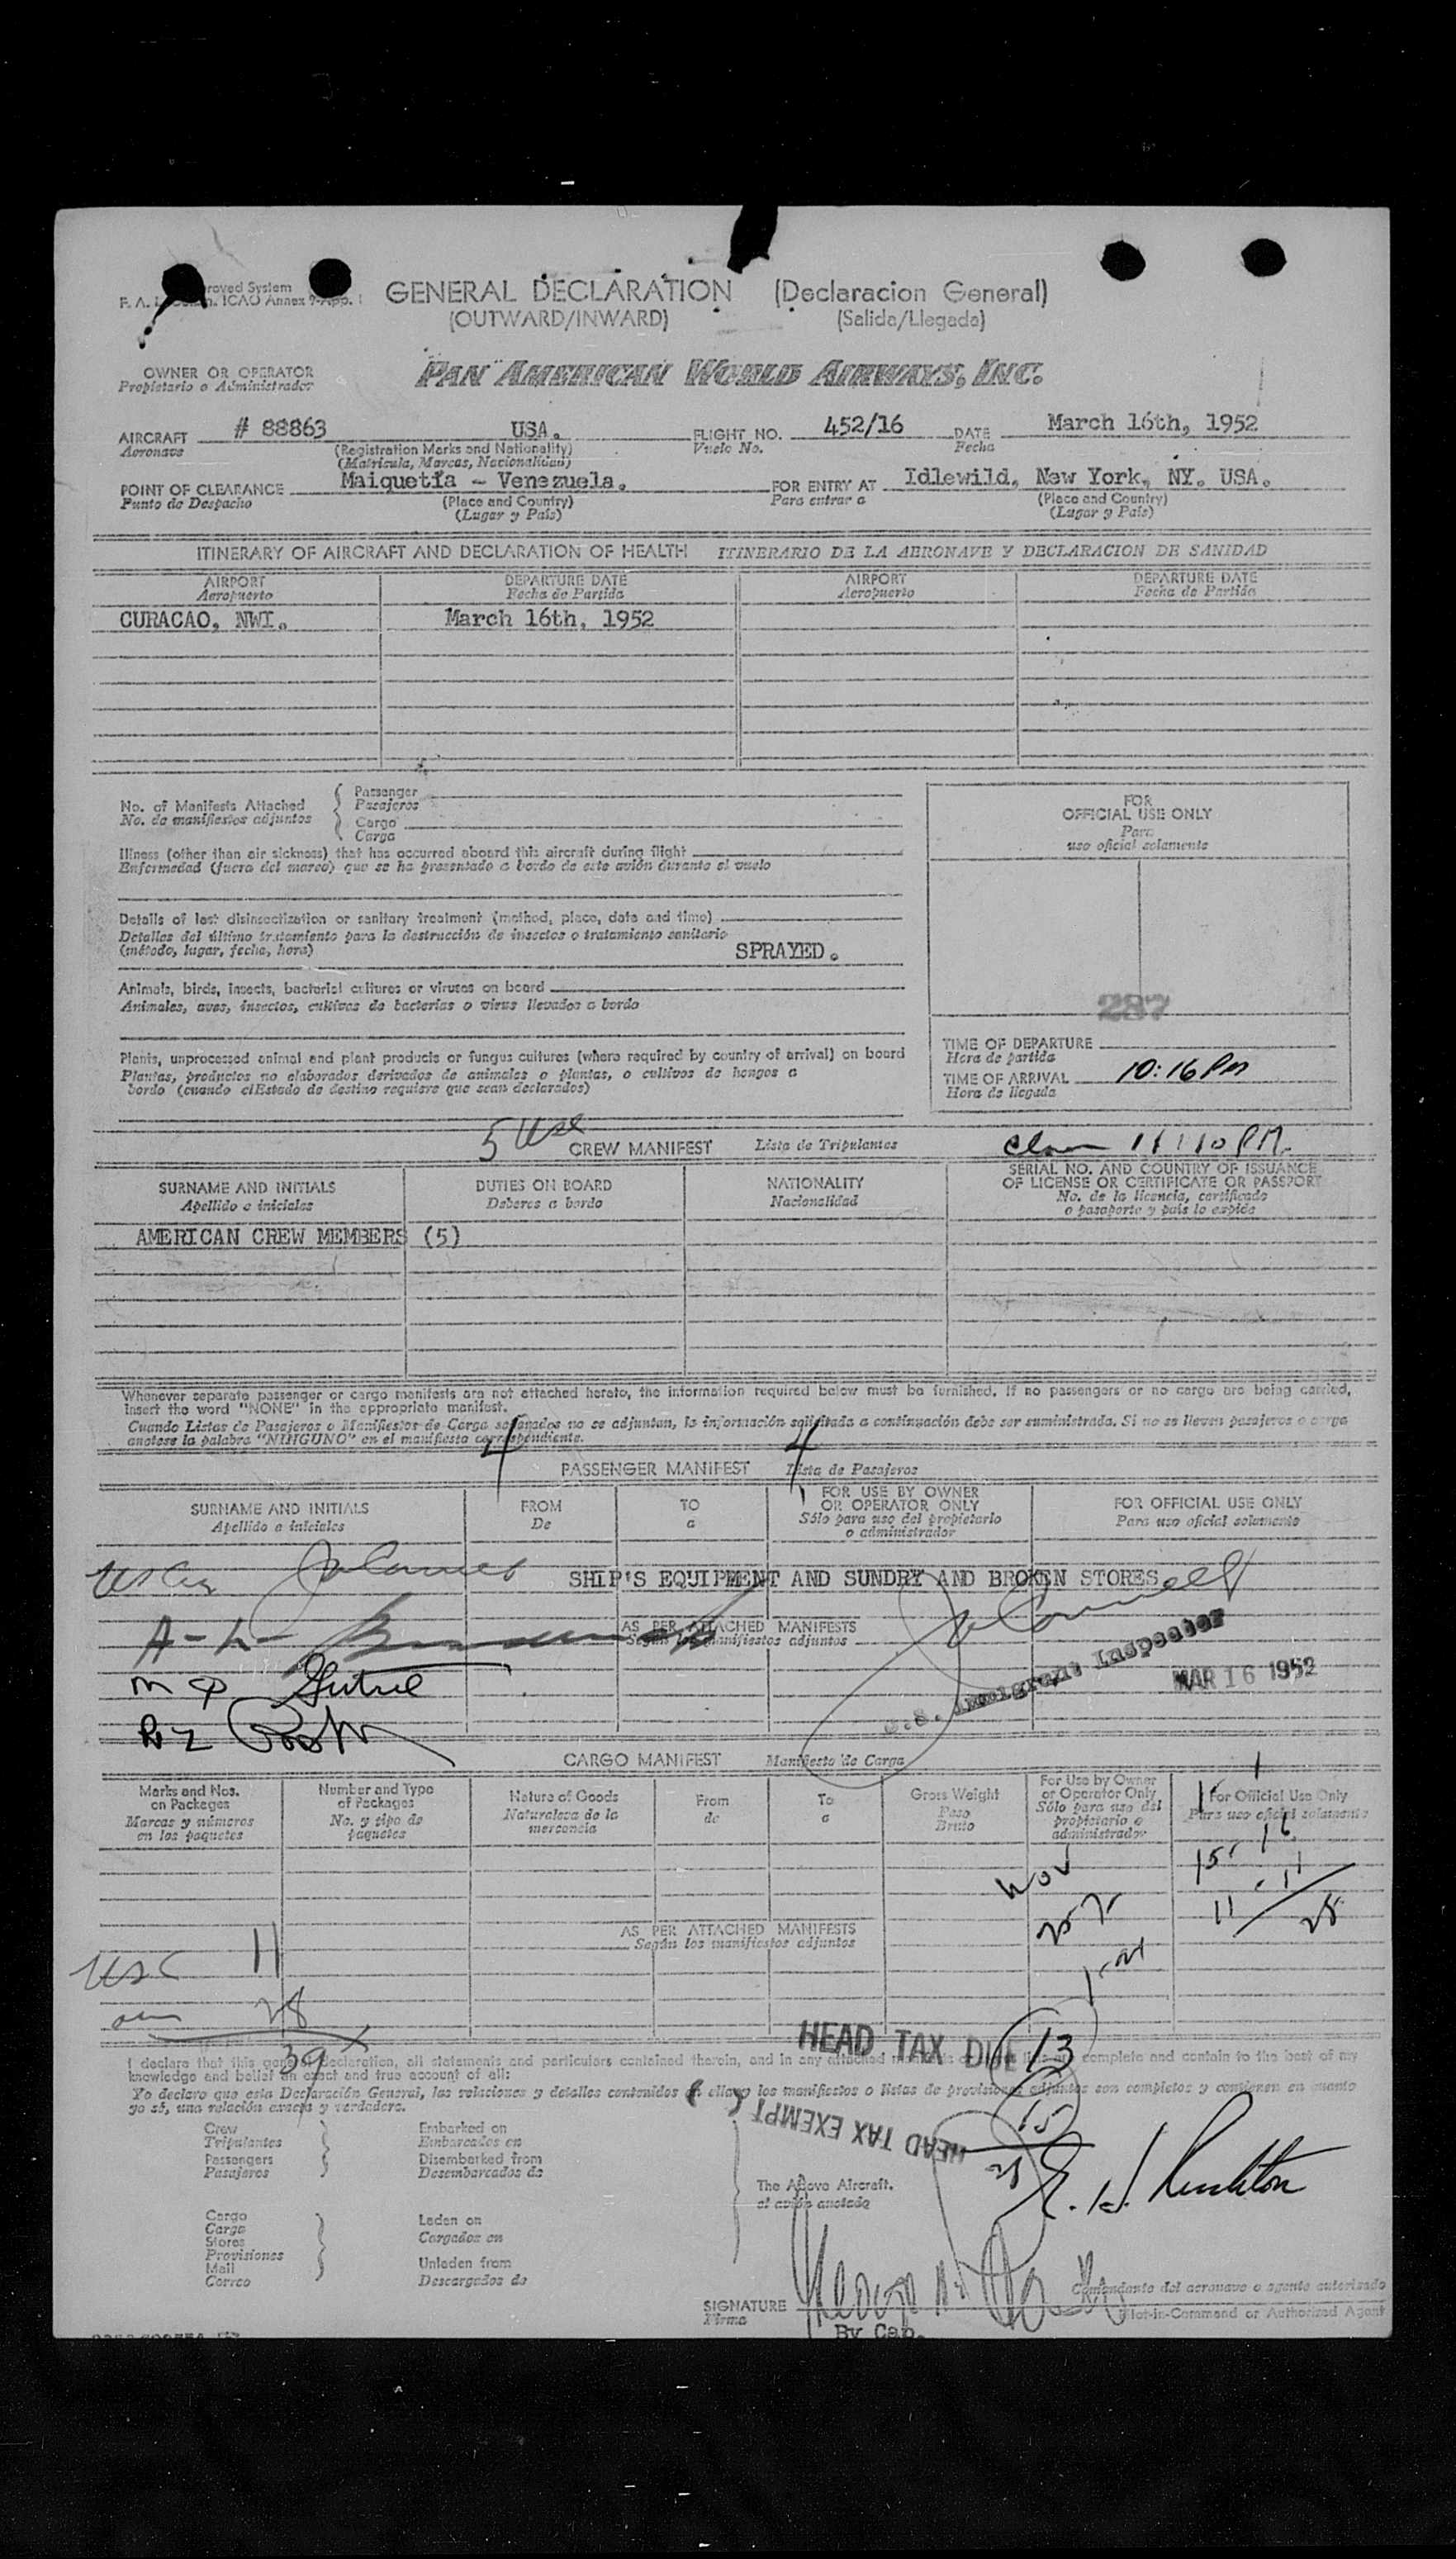 roved System
F. A. L. ICAO Annex 9-App. 1
GENERAL DECLARATION (Declaracion General)
(OUTWARD/INWARD) (Salida/Llegada)
OWNER OR OPERATOR
Propietario o Administrador
PAN AMERICAN WORLD AIRWAYS, INC.
AIRCRAFT # 88863 USA. FLIGHT NO. 452/16 DATE March 16th, 1952
Aeronave (Registration Marks and Nationality) Vuelo No. Fecha
(Matricula, Marcas, Nacionalidad)
POINT OF CLEARANCE Maiquetía - Venezuela. FOR ENTRY AT Idlewild, New York, NY. USA.
Punto de Despacho (Place and Country) Para entrar a (Place and Country)
(Lugar y País) (Lugar y País)
ITINERARY OF AIRCRAFT AND DECLARATION OF HEALTH ITINERARIO DE LA AERONAVE Y DECLARACION DE SANIDAD
AIRPORT DEPARTURE DATE AIRPORT DEPARTURE DATE
Aeropuerto Fecha de Partida Aeropuerto Fecha de Partida
CURACAO, NWI. March 16th, 1952
No. of Manifests Attached Passenger
No. de manifiestos adjuntos Pasajeros
Cargo
Carga
FOR
OFFICIAL USE ONLY
Para
uso oficial solamente
Illness (other than air sickness) that has occurred aboard this aircraft during flight
Enfermedad (fuera del mareo) que se ha presentado a bordo de este avión durante el vuelo
Details of last disinsectization or sanitary treatment (method, place, date and time)
Detalles del último tratamiento para la destrucción de insectos o tratamiento sanitario
(método, lugar, fecha, hora) SPRAYED.
Animals, birds, insects, bacterial cultures or viruses on board
Animales, aves, insectos, cultivos de bacterias o virus llevados a bordo
287
Plants, unprocessed animal and plant products or fungus cultures (where required by country of arrival) on board
Plantas, productos no elaborados derivados de animales o plantas, o cultivos de hongos a
bordo (cuando elEstado de destino requiere que sean declarados)
TIME OF DEPARTURE
Hora de partida
TIME OF ARRIVAL 10:16 Pm
Hora de llegada
5 USC CREW MANIFEST Lista de Tripulantes 11:10 PM.
SURNAME AND INITIALS DUTIES ON BOARD NATIONALITY SERIAL NO. AND COUNTRY OF ISSUANCE
Apellido e iniciales Deberes a bordo Nacionalidad OF LICENSE OR CERTIFICATE OR PASSPORT
No. de la licencia, certificado
o pasaporte y país lo expide
AMERICAN CREW MEMBERS (5)
Whenever separate passenger or cargo manifests are not attached hereto, the information required below must be furnished. If no passengers or no cargo are being carried,
insert the word "NONE" in the appropriate manifest.
Cuando Listas de Pasajeros o Manifiestos de Carga separados no se adjuntan, la información solicitada a continuación debe ser suministrada. Si no se lleven pasajeros o carga
anotese la palabra "NINGUNO" en el manifiesto correspondiente.
4 4
PASSENGER MANIFEST Lista de Pasajeros
SURNAME AND INITIALS FROM TO FOR USE BY OWNER FOR OFFICIAL USE ONLY
Apellido e iniciales De a OR OPERATOR ONLY Para uso oficial solamente
Sólo para uso del propietario
o administrador
SHIP'S EQUIPMENT AND SUNDRY AND BROKEN STORES
AS PER ATTACHED MANIFESTS
Según los manifiestos adjuntos
U.S. Immigrant Inspector
MAR 16 1952
CARGO MANIFEST Manifiesto de Carga
Marks and Nos. Number and Type Nature of Goods From To Gross Weight For Use by Owner For Official Use Only
on Packages of Packages Naturaleza de la de a Peso or Operator Only Para uso oficial solamente
Marcas y números No. y tipo de mercancia Bruto Sólo para uso del
en los paquetes paquetes propietario o
administrador
15 16
11 11
28
AS PER ATTACHED MANIFESTS
Según los manifiestos adjuntos
USC 11
28
39
HEAD TAX DUE 13
I declare that this general declaration, all statements and particulars contained therein, and in any attached complete and contain to the best of my
knowledge and belief an exact and true account of all:
Yo declaro que esta Declaración General, las relaciones y detalles contenidos en ella y los manifiestos o listas de provisiones adjuntas son completos y contienen en cuanto
yo sé, una relación exacta y verdadera.
HEAD TAX EXEMPT 15
28
Crew Embarked on
Tripulantes Embarcados en
Passengers Disembarked from
Pasajeros Desembarcados de
The Above Aircraft.
al avión anotado
Cargo Laden on
Carga Cargados en
Stores
Provisiones
Mail Unladen from
Correo Descargados de
Comandante del aeronave o agente autorizado
SIGNATURE Pilot-in-Command or Authorized Agent
Firma
By Cap.